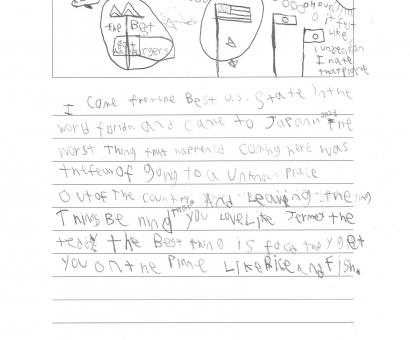 the Best
burgers
it felt
like
I hate
that plane
I Come from the Best U.S. State in the
world florida and came to Japan in 2023 The
worst thing that happened coming here was
the fear of going to a Unknown Place
Out of The country And Leaving the
Things Behind that you Love Like Jermey the
teddy the Best thing is food they get
you on the Plane Like Rice and Fish.